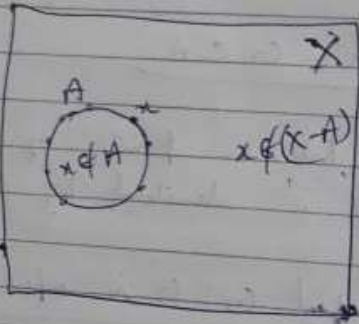 X
A x
x ∉ A
x ∉ (X-A)